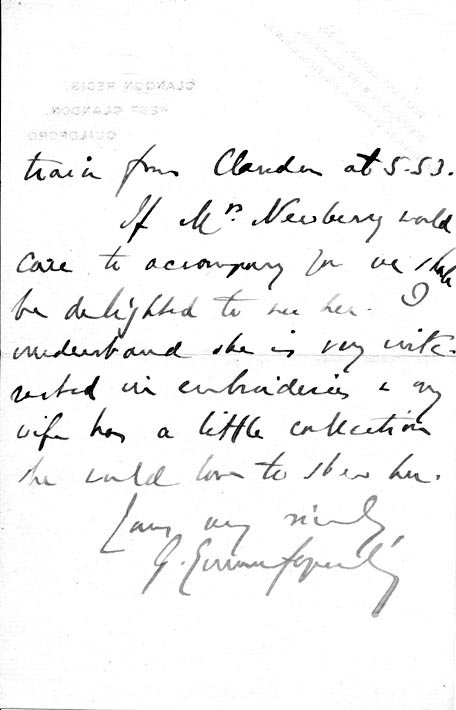 CLANDON REGIS,
WEST CLANDON,
GUILDFORD
train from Clandon at 5-53.
If Mrs Newberry would
care to accompany you we shall
be delighted to see her. I
understand she is very inte-
rested in embroideries & my
wife has a little collection
she would love to shew her.
Yours very sincerely
G.